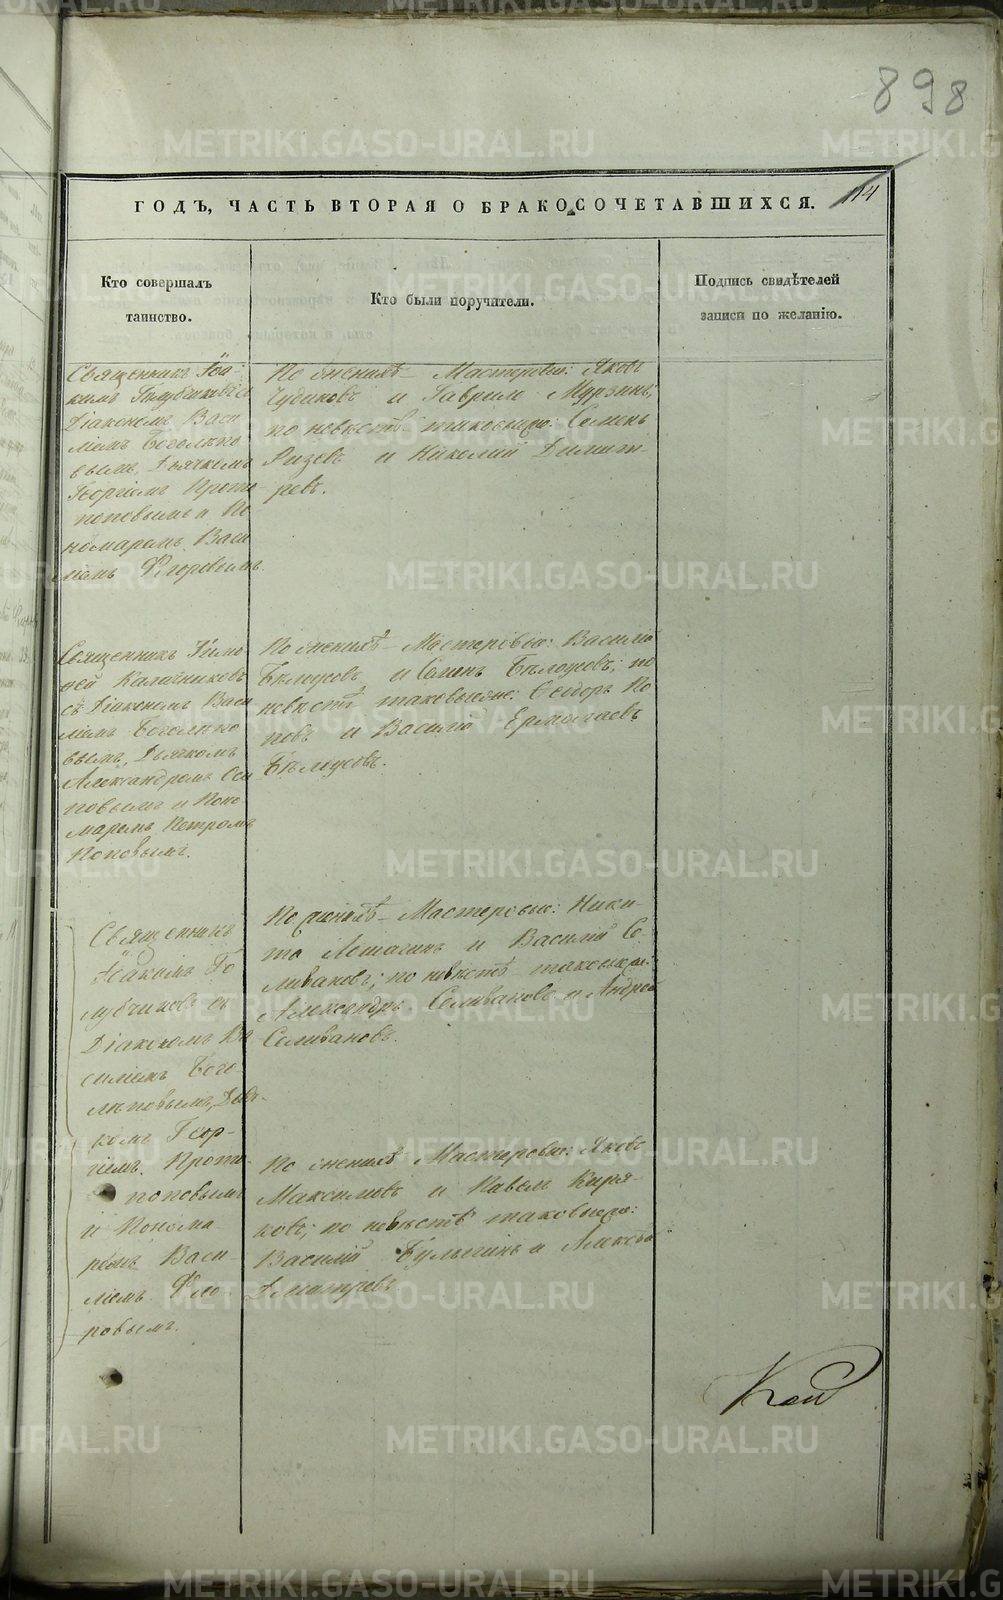 898
114
ГОДЪ, ЧАСТЬ ВТОРАЯ О БРАКОСОЧЕТАВШИХСЯ.
Кто совершалъ
таинство.
Кто были поручители.
Подпись свидѣтелей
записи по желанію.
Священникъ Іоа-
кимъ Голубчиковъ съ
Діакономъ Васи
ліемъ Боголѣпо
вымъ, Дьячкомъ
Георгіемъ Прото
поповымъ и По
номаремъ Васи
ліемъ Флоровымъ.
По женихѣ – Мастеровые: Яковъ
Чудиновъ и Гаврило Мурзинъ;
по невѣстѣ таковыеже: Семенъ
и Николай Димит-
ревъ.
Священникъ Тимо
ѳей Калачниковъ
съ Діакономъ Васи
ліемъ Боголѣпо
вымъ, Дьячкомъ
Александромъ Оси
повымъ и Поно
маремъ Петромъ
Поповымъ.
По женихѣ – Мастеровые: Василій
Бѣлоусовъ и Семенъ Бѣлоусовъ; по
невѣстѣ таковыеже: Ѳедоръ По
повъ и Василій Ермолаевъ
Бѣлоусовъ.
Священникъ
Іоакимъ Го
лубчиковъ съ
Діакономъ Ва
силіемъ Бого
лѣповымъ, Дья-
комъ Геор-
гіемъ Прото
поповымъ
и Понома
ремъ Васи
ліемъ Фло
ровымъ.
По женихѣ – Мастеровые: Ники-
та Лошагинъ и Василій Се
ливановъ; по невѣстѣ таковыеже:
Александръ Селивановъ и Андрей
Селивановъ.
По женихѣ Мастеровые: Яковъ
Максимовъ и Павелъ Киря-
ковъ; по невѣстѣ таковыеже:
Василій Булыгинъ и Алексѣй
Дмитревъ
METRIKI.GASO-URAL.RU